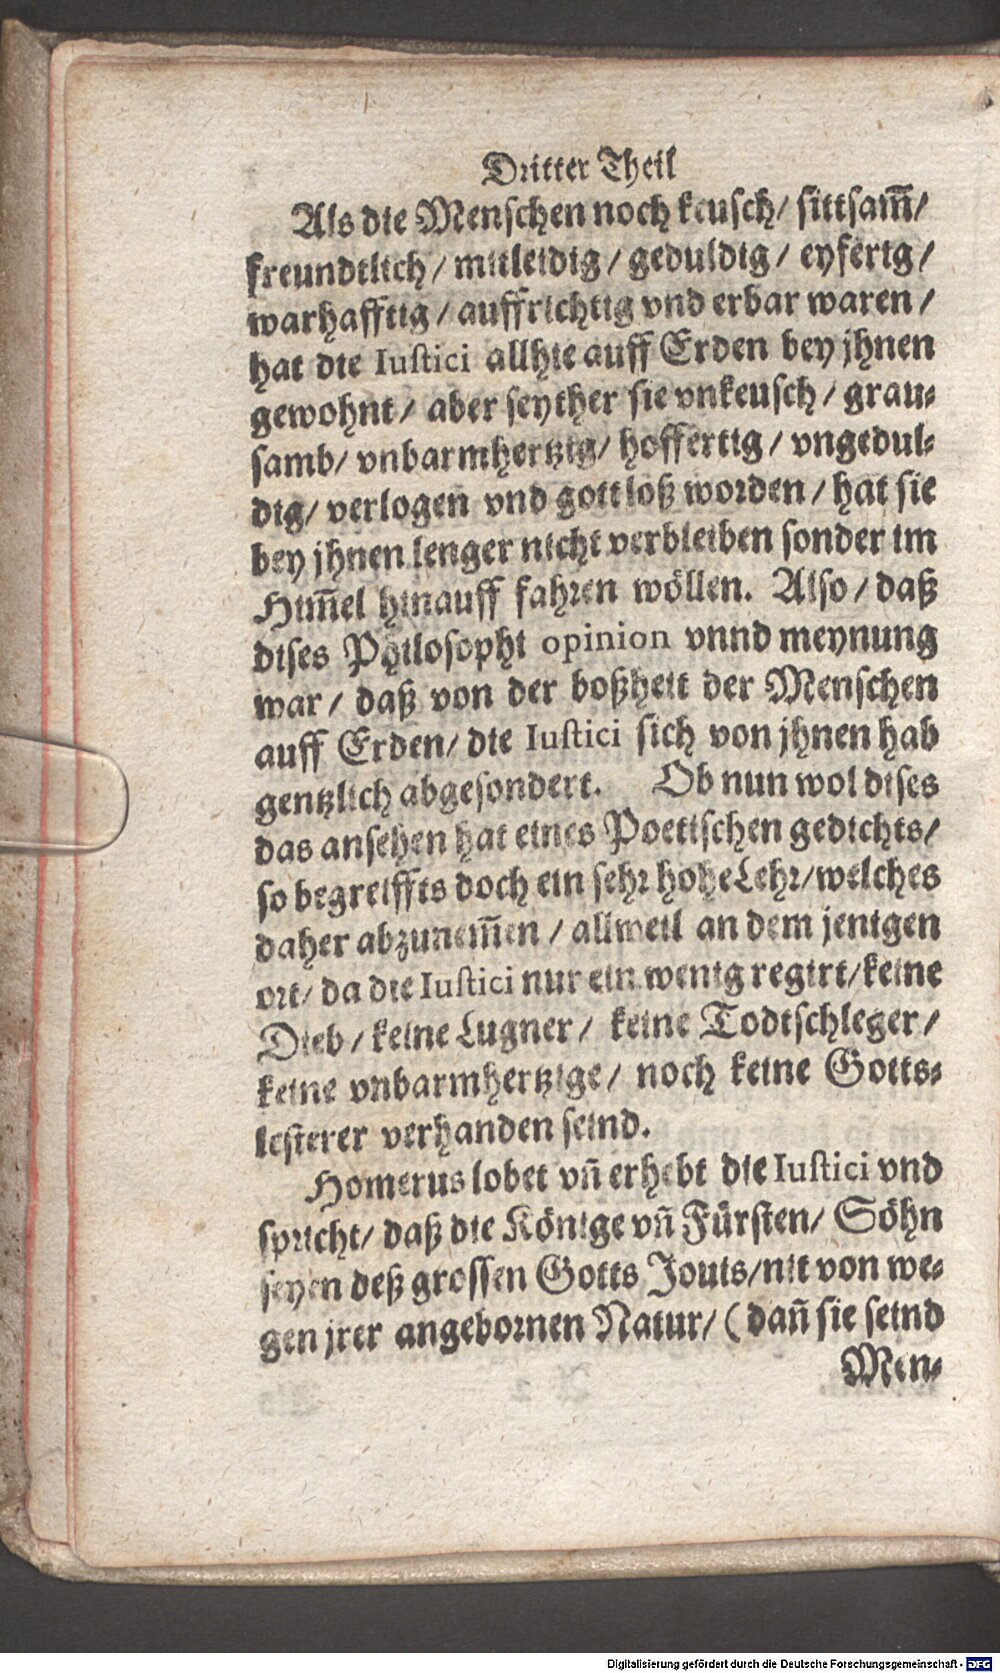 Dritter Theil
Als die Menschen noch keusch/ sittsam̄/
freundtlich/ mitleidig/ geduldig/ eyferig/
warhafftig/ auffrichtig vnd erbar waren/
hat die Iustici allhie auff Erden bey jhnen
gewohnt/ aber seyther sie vnkeusch/ grau-
samb/ vnbarmhertzig/ hoffertig/ vngedul-
dig/ verlogen vnd gottloß worden/ hat sie
bey jhnen lenger nicht verbleiben sonder im
Him̄el hinauff fahren wöllen. Also/ daß
dises Philosophi opinion vnnd meynung
war/ daß von der boßheit der Menschen
auff Erden/ die Iustici sich von jhnen hab
gentzlich abgesondert. Ob nun wol dises
das ansehen hat eines Poetischen gedichts/
so begreiffts doch ein sehr hohe Lehr/ welches
daher abzunem̄en/ allweil an dem jenigen
ort/ da die Iustici nur ein wenig regirt/ keine
Dieb/ keine Lugner/ keine Todtschleger/
keine vnbarmhertzige/ noch keine Gotts-
lesterer verhanden seind.
Homerus lobet vn̄ erhebt die Iustici vnd
spricht/ daß die Könige vn̄ Fürsten/ Söhn
seyen deß grossen Gotts Jouis/ nit von we-
gen jrer angebornen Natur/ (dan̄ sie seind
Men-
Digitalisierung gefördert durch die Deutsche Forschungsgemeinschaft - DFG